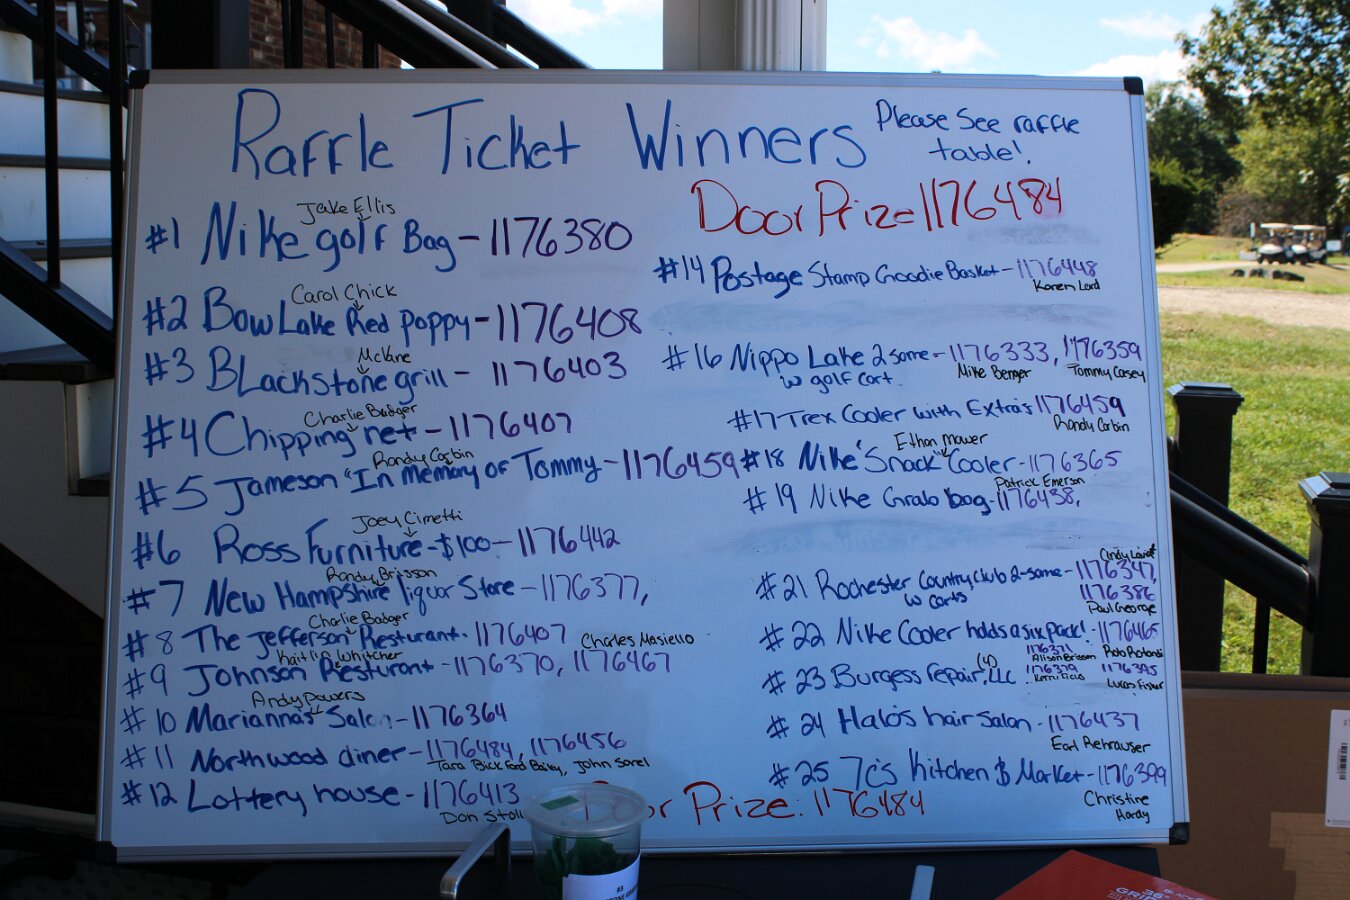 Raffle Ticket Winners
Please See raffle
table!
Door Prize 1176484
Jake Ellis
#1 Nike golf Bag - 1176380
Carol Chick
#2 Bow Lake Red poppy - 1176408
McVane
#3 BLackstone grill - 1176403
Charlie Badger
#4 Chipping net - 1176407
Randy Corbin
#5 Jameson "In memory of Tommy - 1176459
Joey Cimetti
#6 Ross Furniture - $100 - 1176442
Randy Brisson
#7 New Hampshire liquor Store - 1176377,
Charlie Badger
#8 The Jefferson Resturant. 1176407
Kaitlin Whitcher
Charles Masiello
#9 Johnson Resturant - 1176370, 1176467
Andy Powers
#10 Marianna's Salon - 1176364
#11 Northwood diner - 1176484, 1176456
Tara Bickford Bailey, John Sorel
#12 Lottery house - 1176413
Don
#14 Postage Stamp Goodie Basket - 1176448
Karen Lord
#16 Nippo Lake 2 some - 1176333, 1176359
w golf cart
Mike Berger
Tommy Casey
#17 Trex Cooler with Extra's 1176459
Randy Corbin
Ethan Mower
#18 Nike "Snack" Cooler - 1176365
Patrick Emerson
#19 Nike Grab bag - 1176438,
Cindy
#21 Rochester Country Club 2-some - 1176347,
w carts
1176386
Paul George
#22 Nike Cooler holds a six pack! - 1176465
Rob Rotondi
1176371
Alison Brisson
#23 Burgess repair, LLC (4)
1176379
1176395
Lucas Fisher
#24 Halo's hair salon - 1176437
Earl Rehrauser
#25 7c's Kitchen & Market - 1176399
Christine
Hardy
or Prize: 1176484
#3
36"